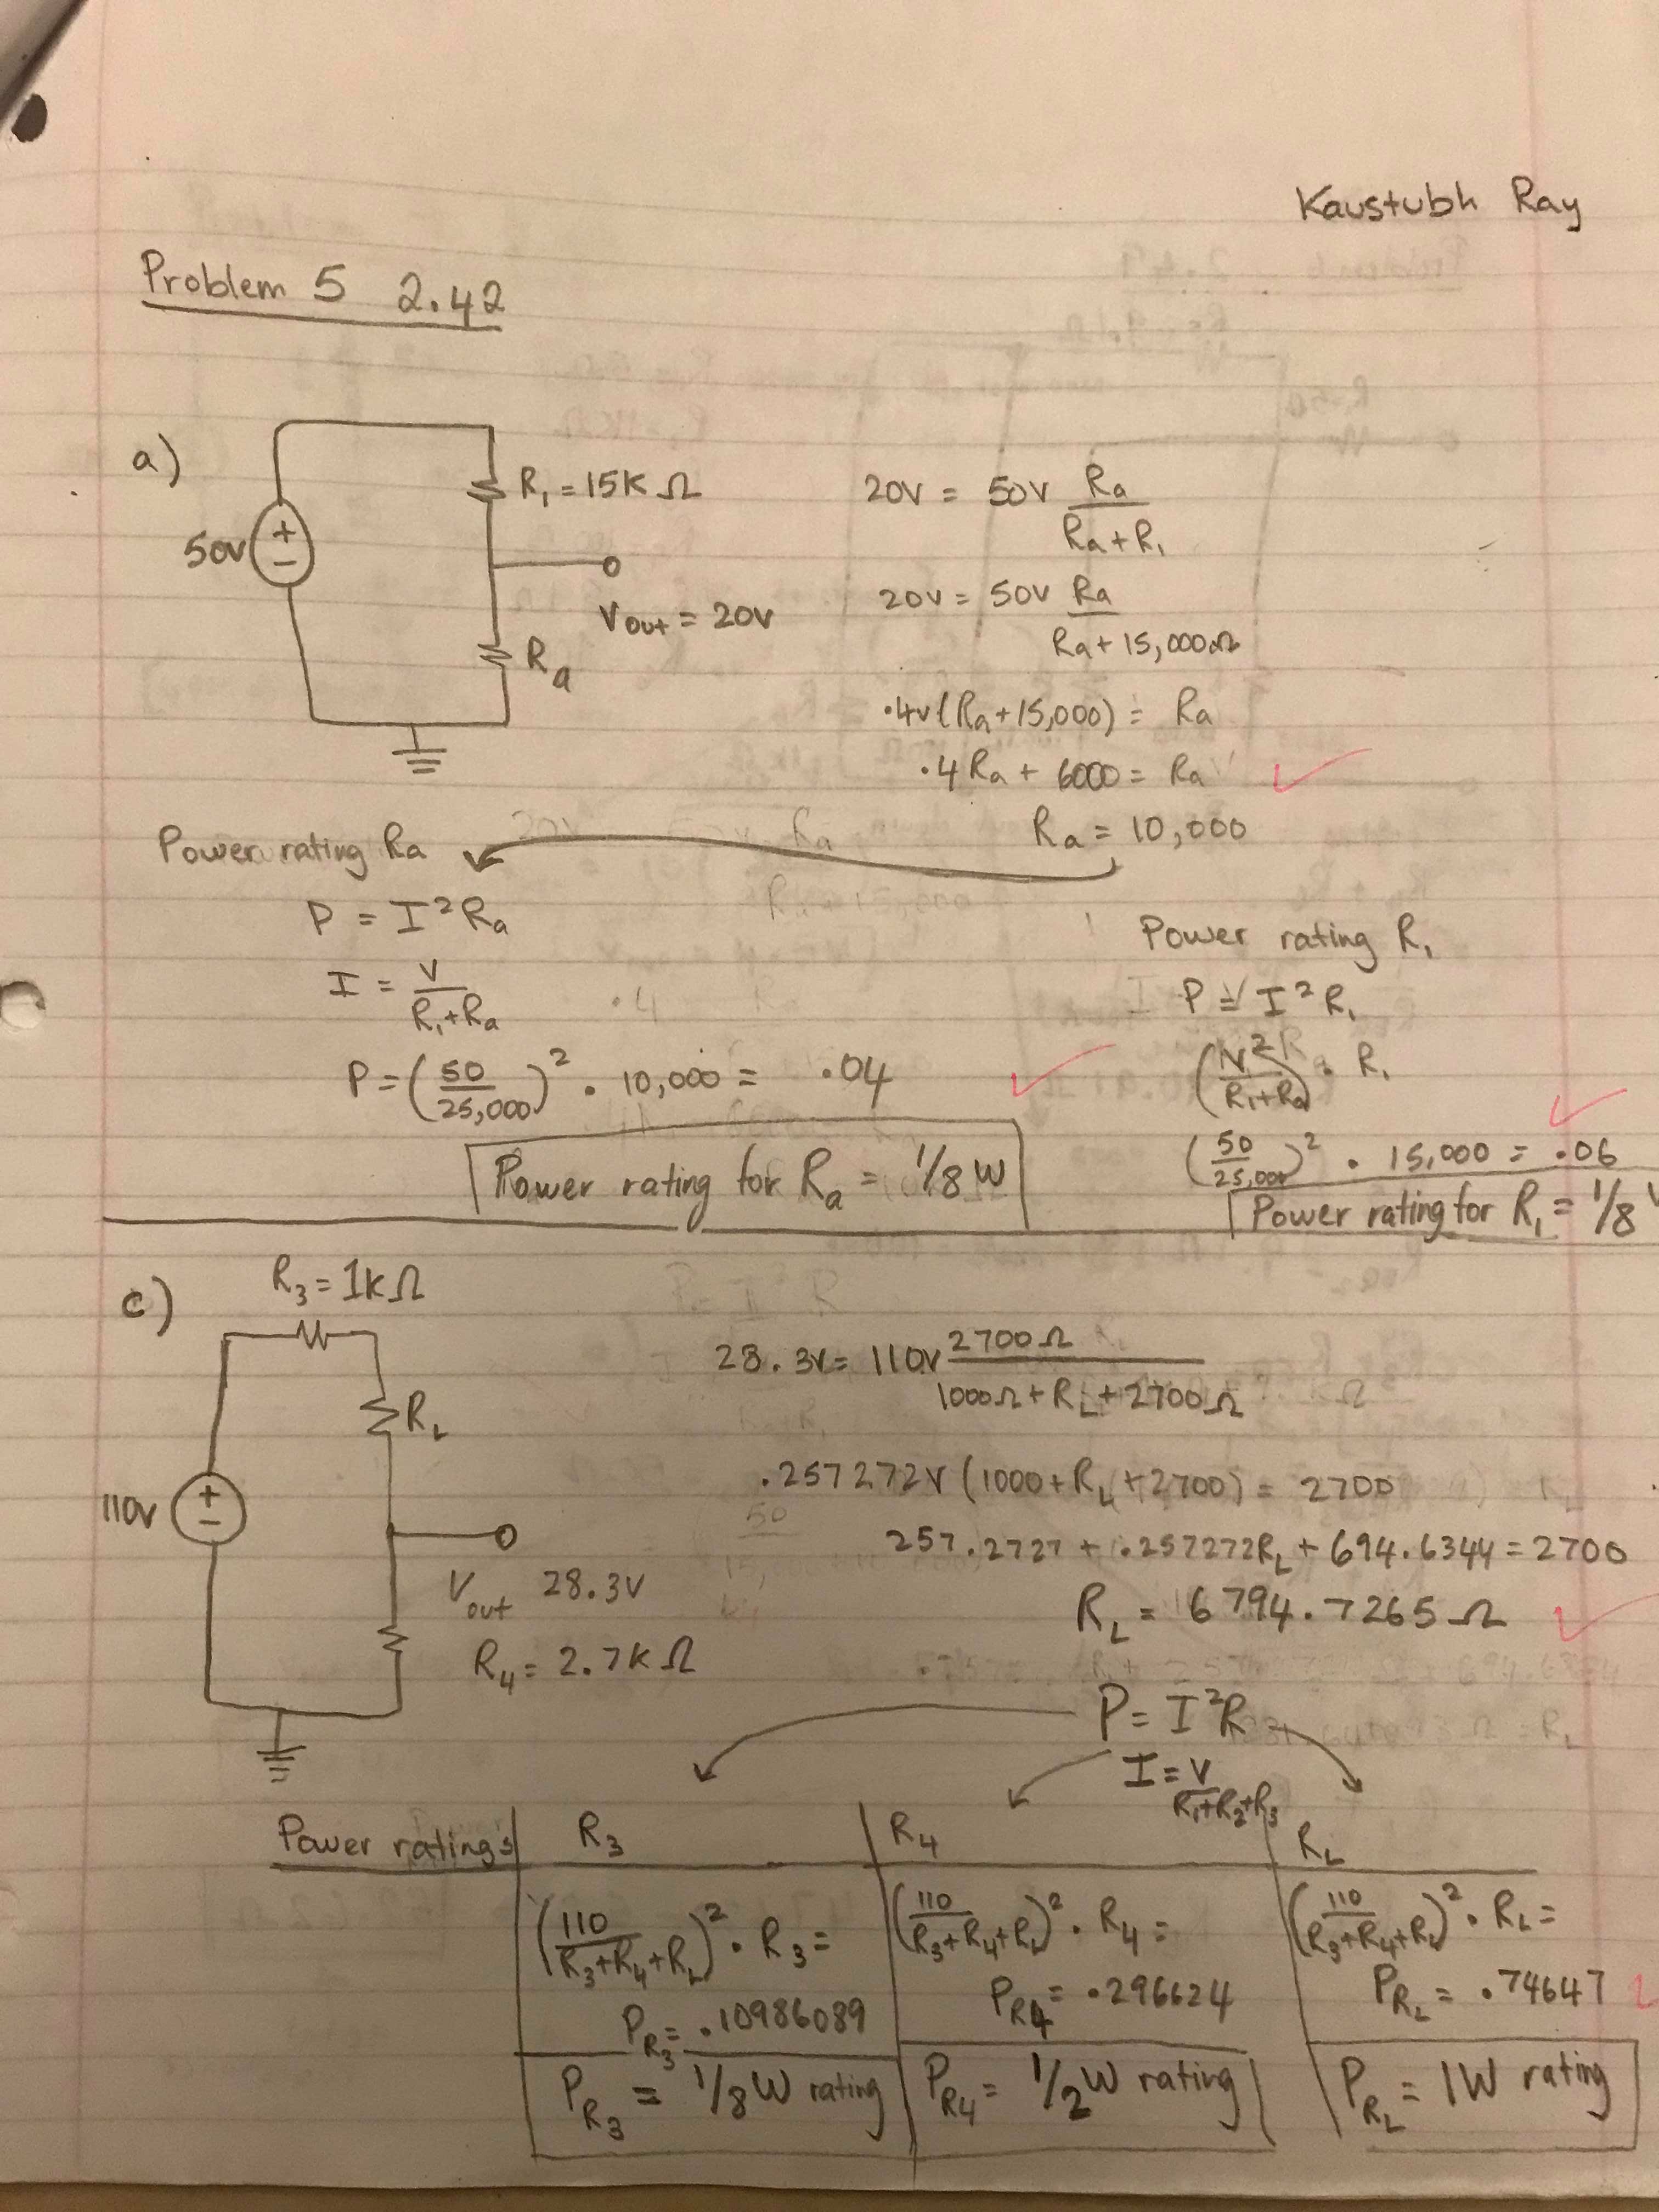 Kaustubh Ray
Problem 5 2.42
a)
R₁ = 15K Ω
50V
+
−
Vout = 20V
Ra
20V = 50V Ra / (Ra + R₁)
20V = 50V Ra / (Ra + 15,000Ω)
.4v(Ra + 15,000) = Ra
.4 Ra + 6000 = Ra
Ra = 10,000
Power rating Ra
P = I² Ra
I = V / (R₁ + Ra)
P = (50 / 25,000)² · 10,000 = .04
Power rating for Ra = 1/8 W
Power rating R₁
P = I² R₁
(V / (R₁ + Ra))² · R₁
(50 / 25,000)² · 15,000 = .06
Power rating for R₁ = 1/8
c)
R₃ = 1K Ω
RL
110V
+
−
Vout 28.3V
R₄ = 2.7K Ω
28.3V = 110V 2700Ω / (1000Ω + RL + 2700Ω)
.257272V (1000 + RL + 2700) = 2700
257.2727 + .257272RL + 694.6344 = 2700
RL = 6794.7265 Ω
P = I²R
I = V / (R₁ + R₂ + R₃)
Power ratings R₃ R₄ RL
(110 / (R₃ + R₄ + RL))² · R₃ =
PR₃ = .10986089
PR₃ = 1/8 W rating
(110 / (R₃ + R₄ + RL))² · R₄ =
PR4 = .296624
PR4 = 1/2 W rating
(110 / (R₃ + R₄ + RL))² · RL =
PRL = .74647
PRL = 1W rating